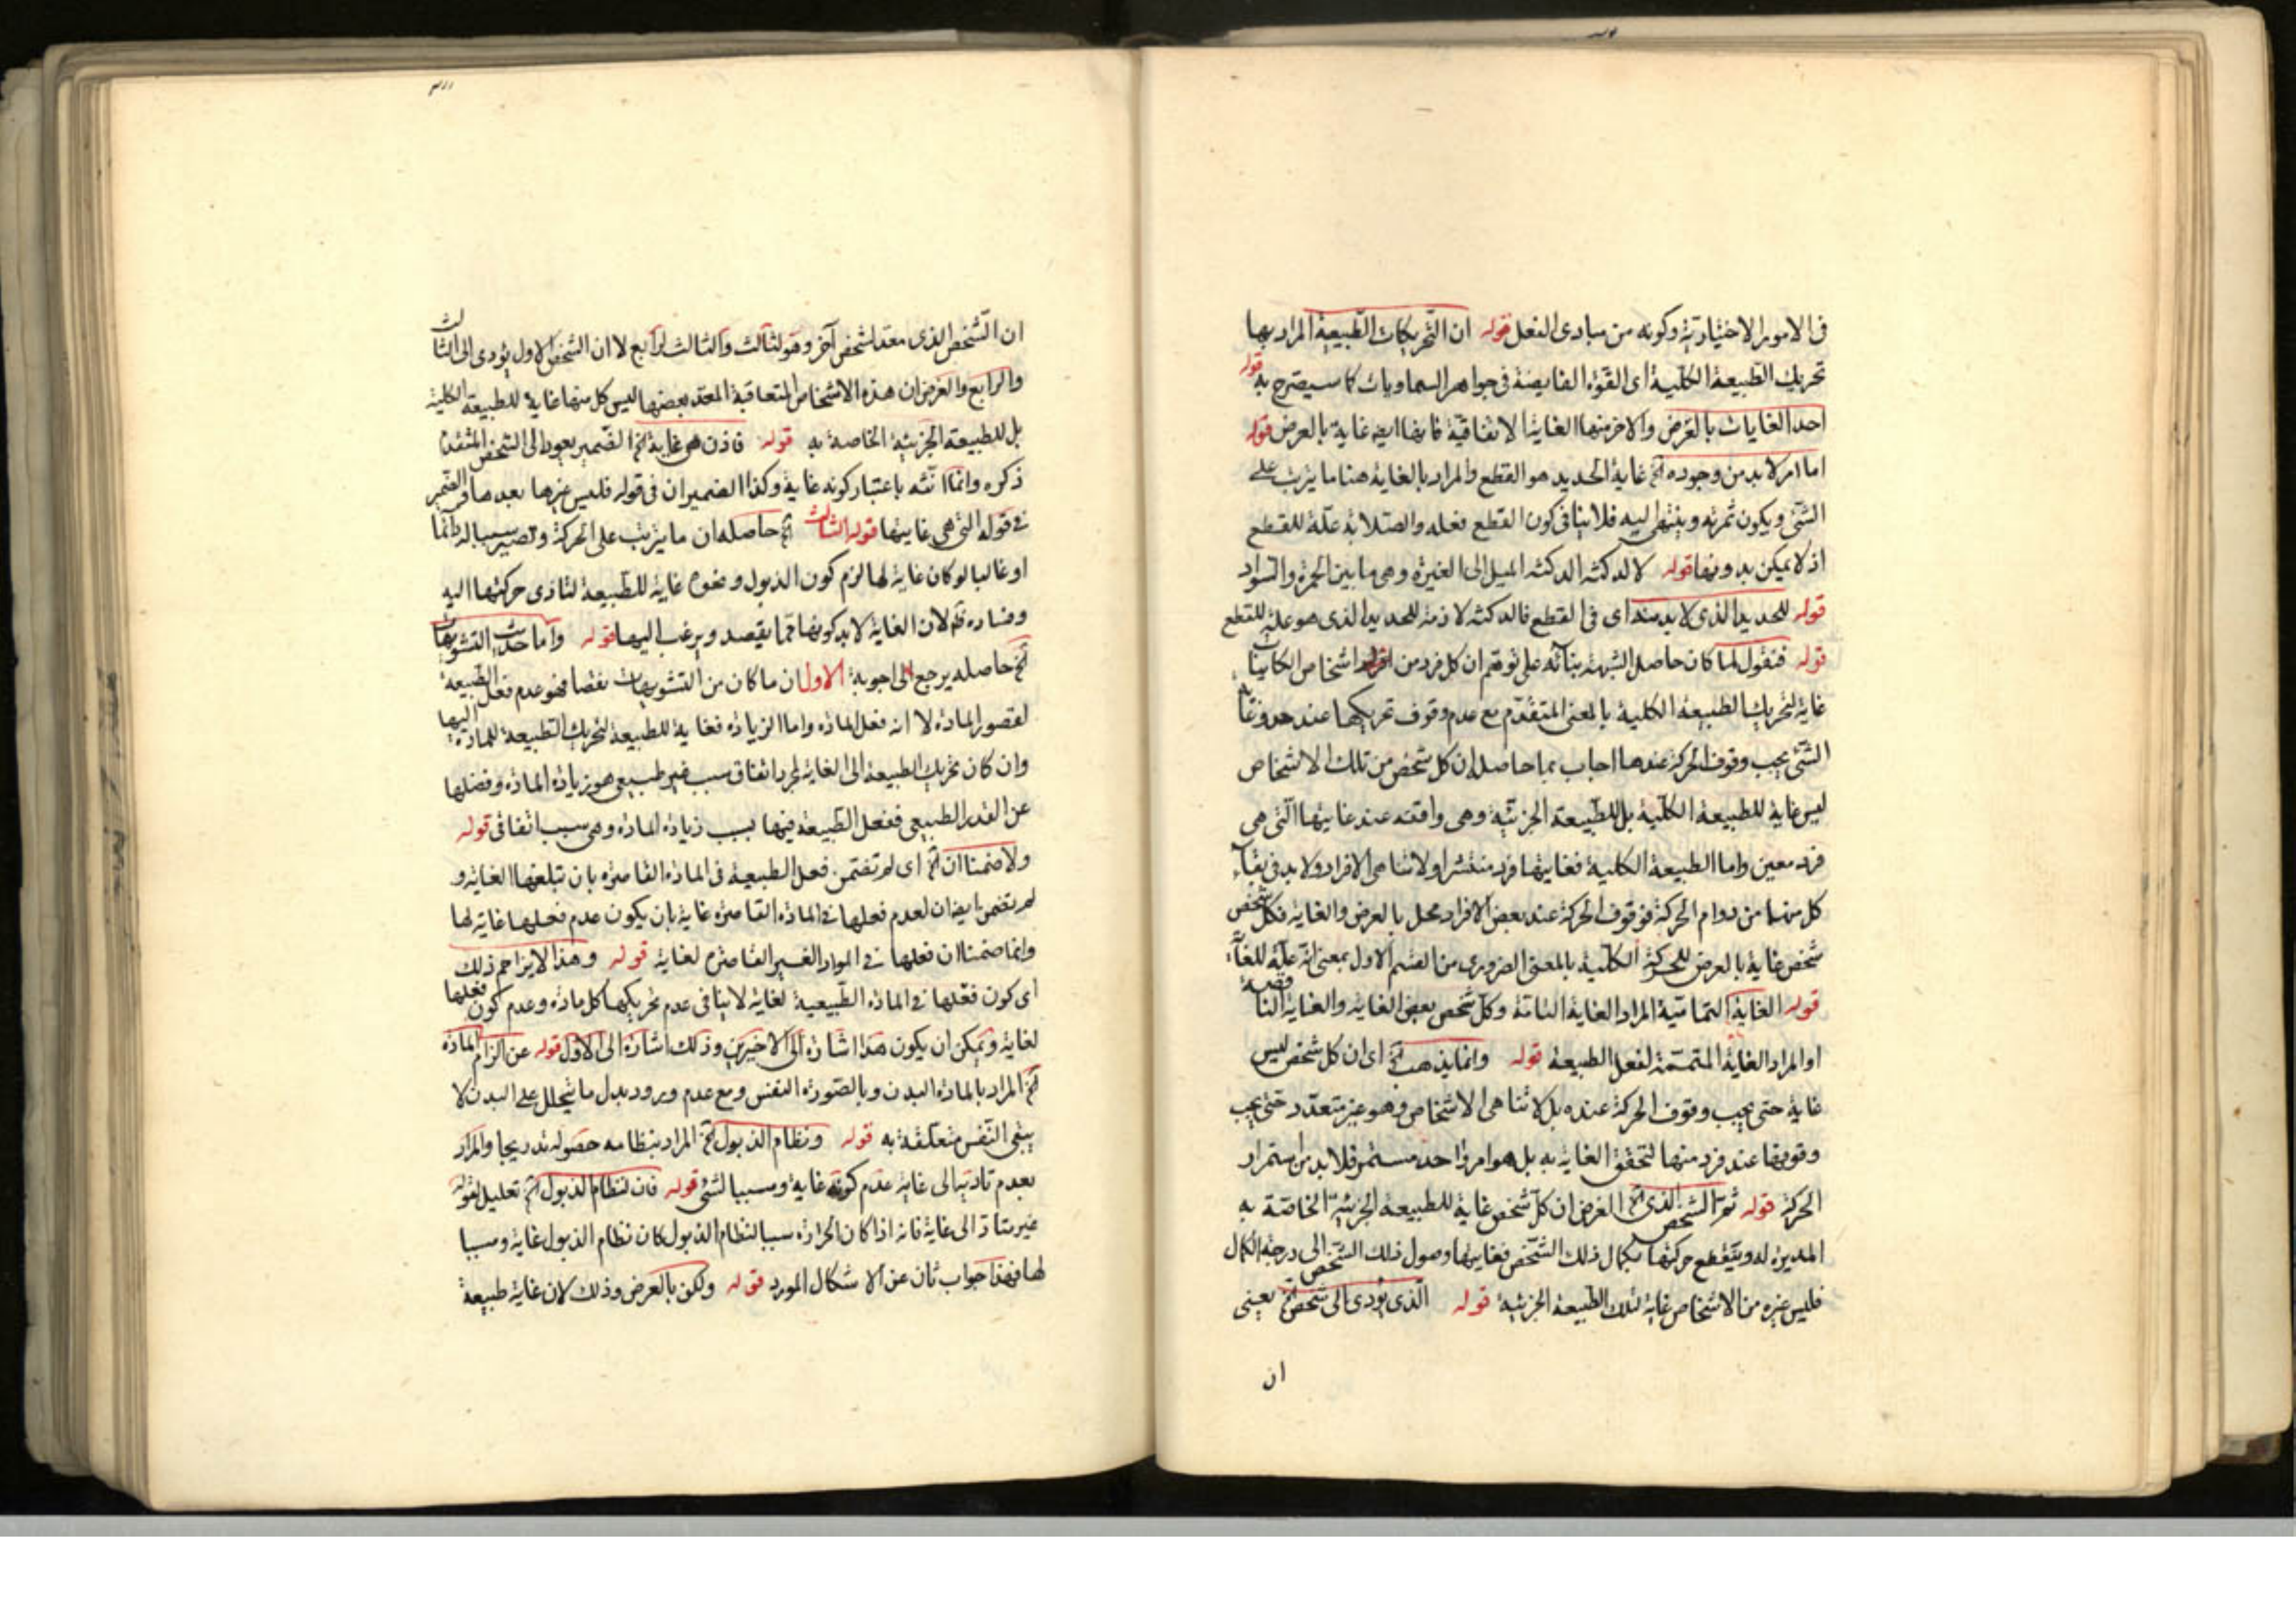 فى الامور الاختيادية وكونه من مبادى الفعل قوله ان التحريكات الطبيعية المراد بها
تحريك الطبيعة الكلية اى القوة الفايضة فى جواهر السماويات كا سيصرح به قوله
احد الغايات بالعرض والاخر منها الغاية الاتفاقية فانها ايضا غاية بالعرض قوله
اما امر لا بد من وجوده الخ غاية الحديد هو القطع والمراد بالغاية هنا ما يترتب على
الشئ ويكون ثمرته وينتهى اليه فلا ينافى كون القطع فعله والصلابة علة للقطع
اذ لا يمكن بدونها قوله لا الدكنة الدكنة الميل الى الغبرة وهى ما بين الحمرة والسواد
قوله للحديد الذى لا بد منه اى فى القطع فالدكنة لازمة للحديد الذى هو علة للقطع
قوله فنقول لما كان حاصل الشبهة بنائه على توهم ان كل فرد من اشخاص الكاينات
غاية لتحريك الطبيعة الكلية بالمعنى المتقدم مع عدم وقوف تحريكها عند حدو غاية
الشئ يجب وقوف الحركة عندها اجاب بما حاصله ان كل شخص من تلك الاشخاص
ليس غاية للطبيعة الكلية بل للطبيعة الجزئية وهى واقفة عند غايتها التى هى
فرد معين واما الطبيعة الكلية فغايتها فرد منتشر او لا تناهى الافراد ولا بد فى بقاء
كل منهما من دوام الحركة فوقوف الحركة عند بعض الافراد محل بالعرض والغاية فكل شخص
شخص غاية بالعرض للحركة الكلية بالمعنى الضرورى من القسم الاول بمعنى انه علة للغاية
قوله الغاية التمامية المراد الغاية التامة وكل شخص بعض الغاية والغاية الناقصة
او المراد الغاية المتممة لفعل الطبيعة قوله وانما يذهب الخ اى ان كل شخص ليس
غاية حتى يجب وقوف الحركة عنده بل لا تناهى الاشخاص وهو غير متعدد حتى يجب
وقوفها عند فرد منها لتحقق الغاية به بل هو امر واحد مستمر فلا بد من استمرار
الحركة قوله ثم الشخص الذى الخ الغرض ان كل شخص غاية للطبيعة الجزئية الخاصة به
المديرة له وينقطع حركتها بكمال ذلك الشخص فغايتها وصول ذلك الشخص الى درجة الكمال
فليس غيره من الاشخاص غاية لتلك الطبيعة الجزئية قوله الذى يؤدى الى شخص الخ يعنى
ان
ان الشخص الذى معد لشخص آخر وهو لثالث والثالث لرابع لا ان الشخص الاول يؤدى الى الثالث
والرابع والغرض ان هذه الاشخاص المتعاقبة المعد بعضها ليس كل منها غاية للطبيعة الكلية
بل للطبيعة الجزئية الخاصة به قوله فاذن هى غاية الخ الضمير يعود الى الشخص المتقدم
ذكره وانما انثه باعتبار كونه غاية وكذا الضميران فى قوله فليس غيرها بعدها والضمير
فى قوله التى هى غايتها قوله الثالث الخ حاصله ان ما يترتب على الحركة وتصير سببا له دائما
او غالبا لو كان غاية لها لزم كون الذبول ونحوه غاية للطبيعة لتادى حركتها اليه
وفساده قم لان الغاية لا بد كونها مما يقصد ويرغب اليها قوله واما حديث التشويهات
الخ حاصله يرجع الى اجوبة الاول ان ما كان من التشويهات نقصا فهو عدم فعل الطبيعة
لقصور المادة لا انه فعل المادة واما الزيادة فغاية للطبيعة لتحريك الطبيعة للمادة اليها
وان كان تحريك الطبيعة الى الغاية لمجرد اتفاق سبب غير طبيعى هو زيادة المادة وفضلها
عن القدر الطبيعى ففعل الطبيعة فيها بسبب زيادة المادة وهى سبب اتفاقى قوله
ولا ضمنا ان الخ اى لم تضمن فعل الطبيعة فى المادة القاصرة بان تبلغها الغاية و
لم تضمن ايضا ان لعدم فعلها فى المادة القاصرة غاية بان يكون عدم فعلها غاية لها
وانما ضمنا ان فعلها فى المواد الغير القاصرة لغاية قوله وهذا لا يزاحم ذلك
اى كون فعلها فى المادة الطبيعية لغاية لا ينافى عدم تحريكها كل مادة وعدم كون فعلها
لغاية ويمكن ان يكون هذا اشارة الى الاخيرين وذلك اشارة الى الاول قوله عن الزام المادة
الخ المراد بالمادة البدن وبالصورة النفس ومع عدم ورود بدل ما يتحلل على البدن لا
يبقى النفس متعلقة به قوله ونظام الذبول الخ المراد بنظامه حصوله تدريجا والمراد
بعدم تاديتها الى غاية عدم كونه غاية ومسببا لشئ قوله فان لنظام الذبول الخ تعليل لقوله
غير متاد الى غاية فانه اذا كان الحرارة سببا لنظام الذبول كان نظام الذبول غاية ومسببا
لها فهذا جواب ثان عن الاشكال المورد قوله ولكن بالعرض وذلك لان غاية طبيعة